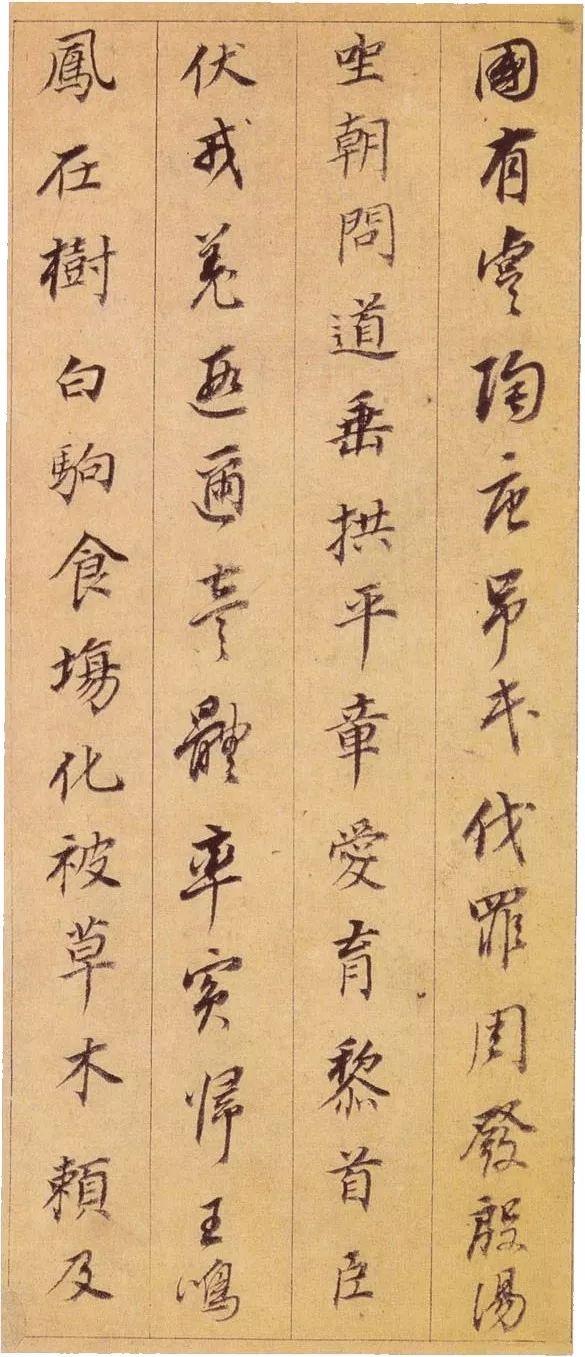 國有虞陶唐吊民伐罪周發殷湯
坐朝問道垂拱平章愛育黎首臣
伏戎羌遐邇壹體率賓歸王鳴
鳳在樹白駒食場化被草木賴及